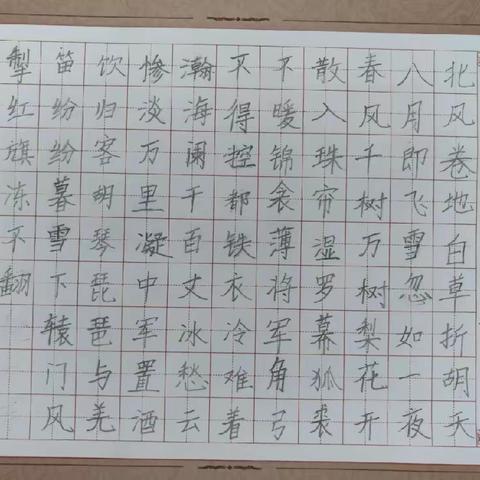 北风卷地白草折胡天
八月即飞雪忽如一夜
春风千树万树梨花开
散入珠帘湿罗幕狐裘
不暖锦衾薄将军角弓
不得控都铁衣冷难着
瀚海阑干百丈冰愁云
惨淡万里凝中军置酒
饮归客胡琴琵琶与羌
笛纷纷暮雪下辕门风
掣红旗冻不翻